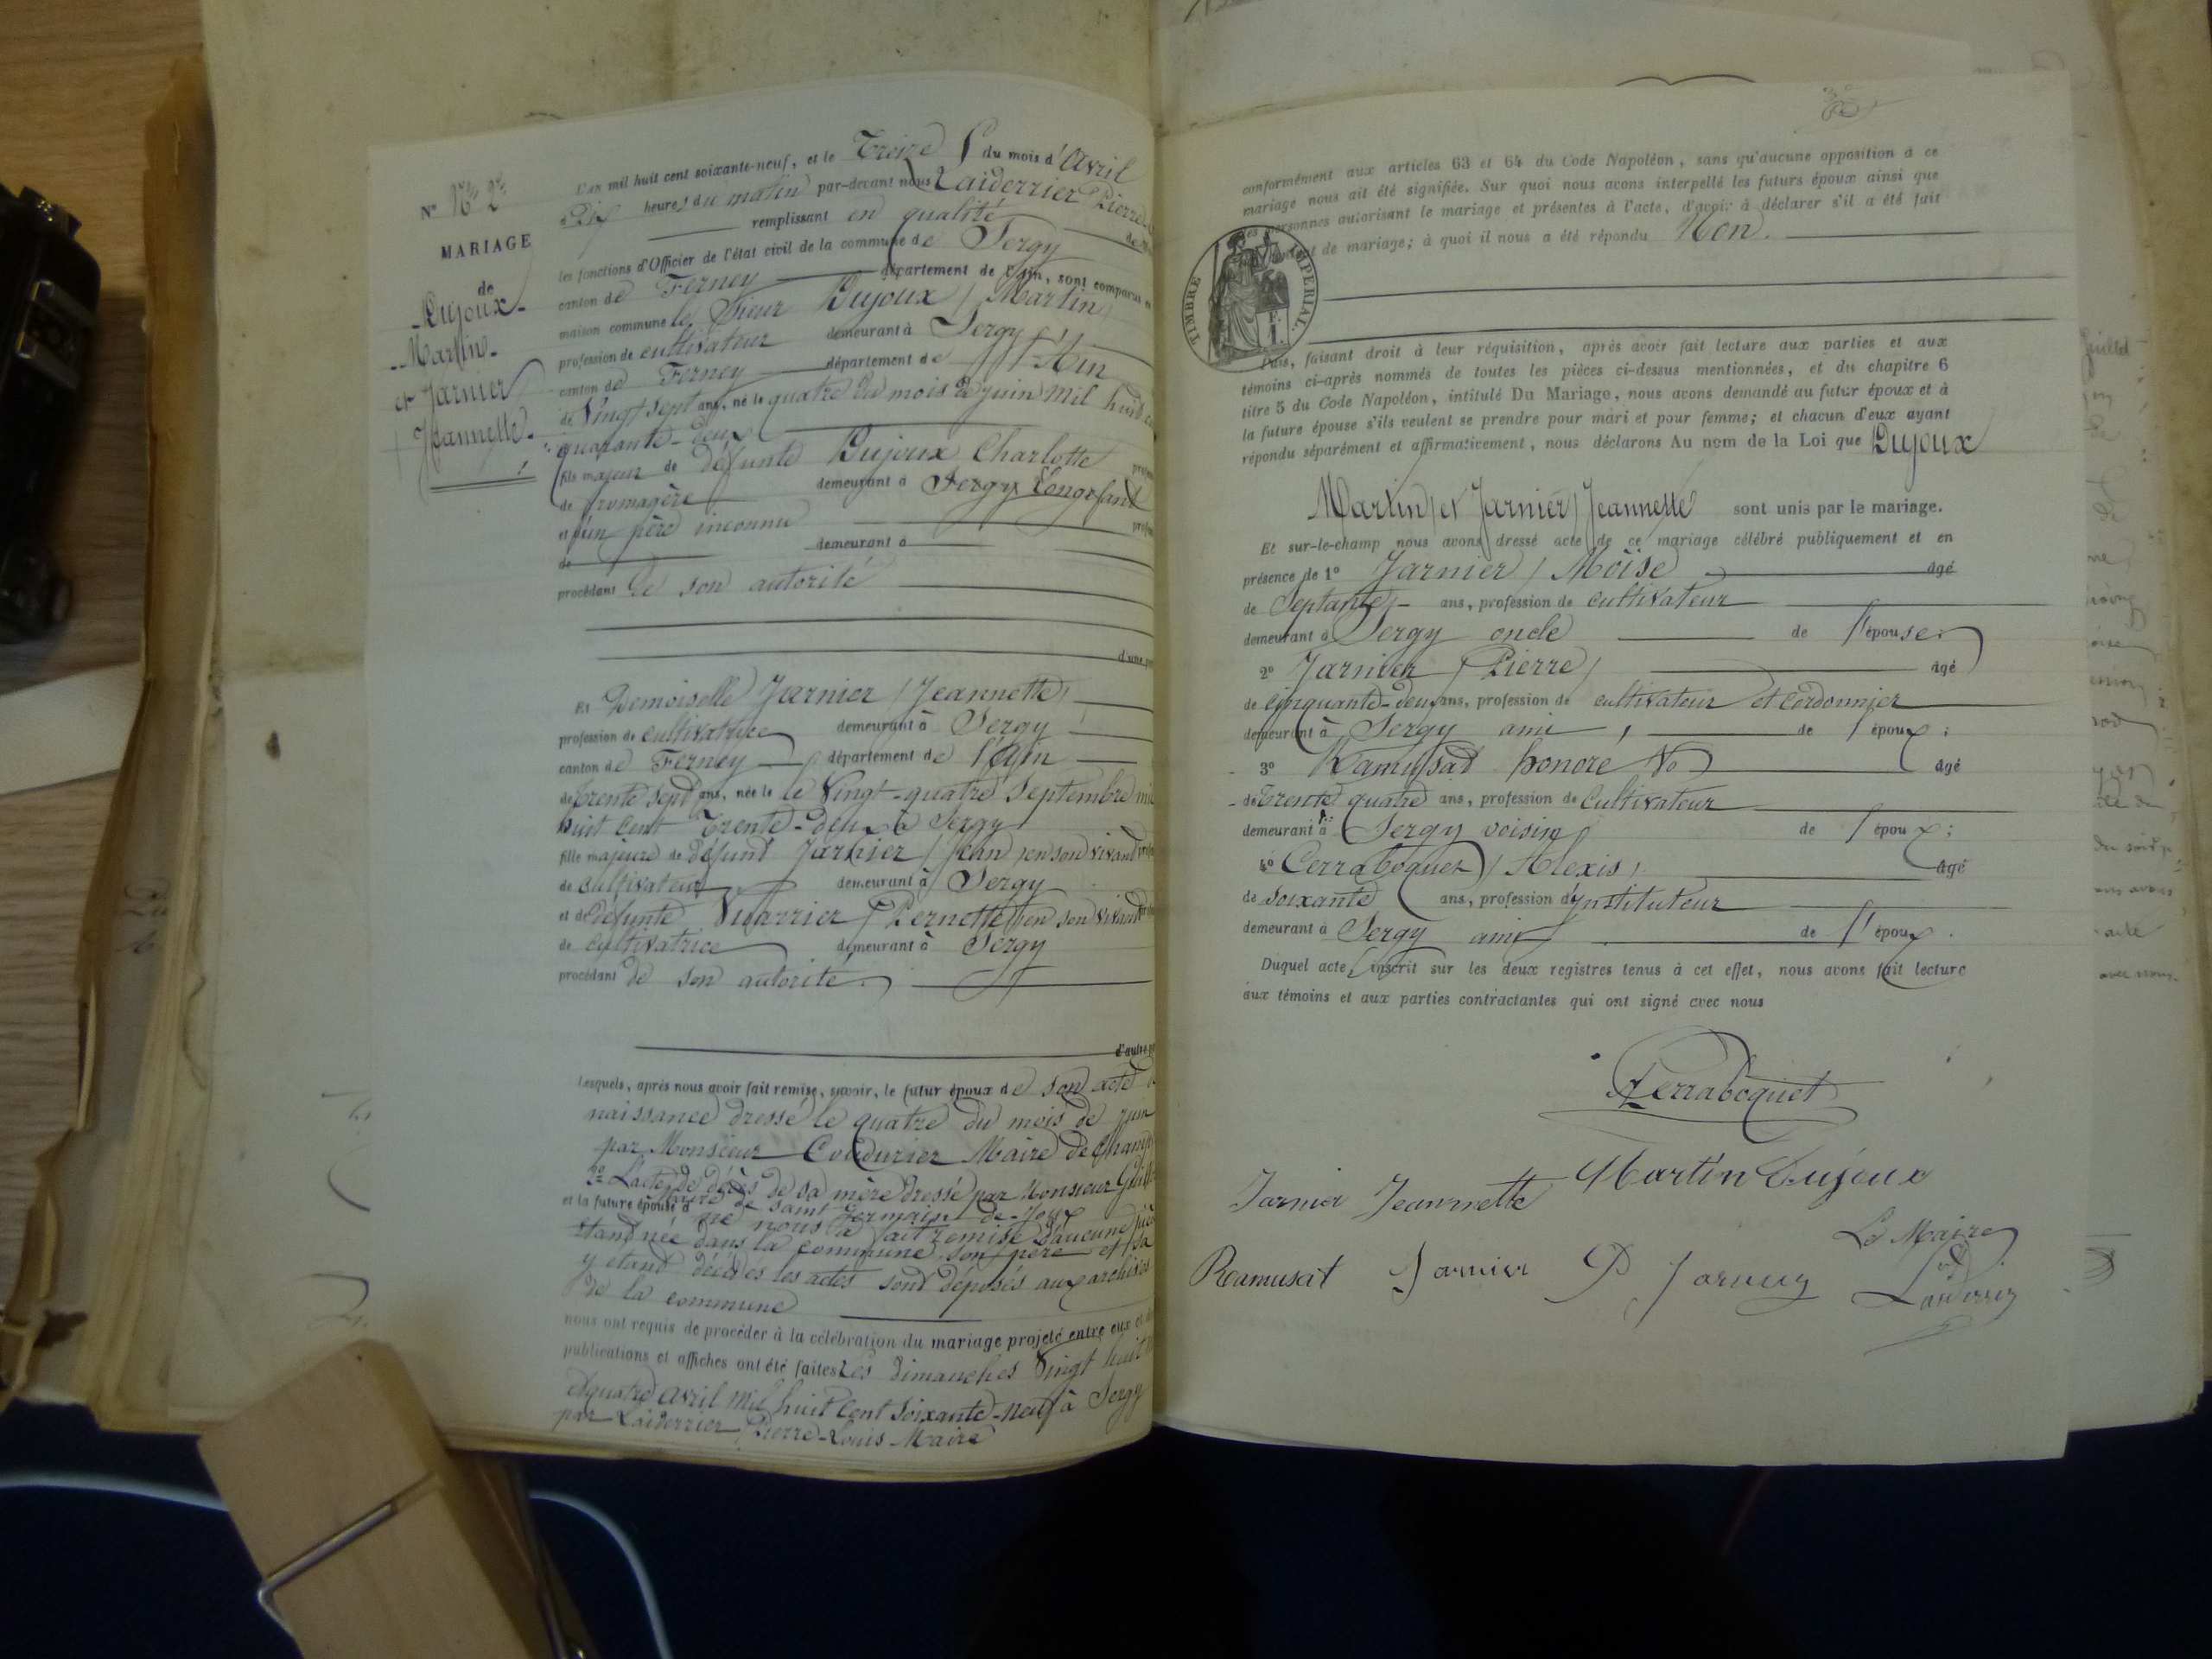 N° 2
MARIAGE
de
Dujoux
Martin
et Jarnier
Jeannette
L'an mil huit cent soixante-neuf, et le Treize du mois d'Avril
Dix heures du matin par-devant nous Laiderrier Pierre
remplissant en qualité de
les fonctions d'Officier de l'état civil de la commune de Sergy
canton de Ferney département de l'Ain, sont comparus en
maison commune le Sieur Dujoux Martin
profession de cultivateur demeurant à Sergy
canton de Ferney département de l'Ain
de Vingt sept ans, né le quatre du mois de juin mil huit
quarante-deux
fils majeur de défunte Dujoux Charlotte
de fromagère demeurant à Sergy
et d'un père inconnu
de demeurant à
procédant de son autorité
d'une
Et Demoiselle Jarnier Jeannette
profession de cultivatrice demeurant à Sergy
canton de Ferney département de l'Ain
de trente sept ans, née le le Vingt-quatre Septembre mil
huit cent Trente-deux à Sergy
fille majeure de défunt Jarnier Jean en son vivant
de cultivateur demeurant à Sergy
et de défunte Vuarrier Pernette en son vivant
de cultivatrice demeurant à Sergy
procédant de son autorité
d'autre
Lesquels, après nous avoir fait remise, savoir, le futur époux de son acte de
naissance dressé le quatre du mois de juin
par Monsieur Coudurier Maire de
2° L'acte de décès de sa mère dressé par Monsieur
maire de Saint Germain-de-Joux
et la future épouse ne nous a fait remise d'aucune
étant née dans la commune son père et sa
y étant décédés les actes sont déposés aux archives
de la commune
nous ont requis de procéder à la célébration du mariage projeté entre eux et
publications et affiches ont été faites Les Dimanches Vingt huit
et quatre avril mil huit cent soixante-neuf à Sergy
par Laiderrier Pierre-Louis-Maire
conformément aux articles 63 et 64 du Code Napoléon, sans qu'aucune opposition à ce
mariage nous ait été signifiée. Sur quoi nous avons interpellé les futurs époux ainsi que
les personnes autorisant le mariage et présentes à l'acte, d'avoir à déclarer s'il a été fait
de mariage; à quoi il nous a été répondu Non.
TIMBRE IMPERIAL.
Puis, faisant droit à leur réquisition, après avoir fait lecture aux parties et aux
témoins ci-après nommés de toutes les pièces ci-dessus mentionnées, et du chapitre 6
titre 5 du Code Napoléon, intitulé Du Mariage, nous avons demandé au futur époux et à
la future épouse s'ils veulent se prendre pour mari et pour femme; et chacun d'eux ayant
répondu séparément et affirmativement, nous déclarons Au nom de la Loi que Dujoux
Martin et Jarnier Jeannette sont unis par le mariage.
Et sur-le-champ nous avons dressé acte de ce mariage célébré publiquement et en
présence de 1° Jarnier Moïse âgé
de Septante ans, profession de cultivateur
demeurant à Sergy oncle de l'épouse
2° Jarnier Pierre âgé
de cinquante-deux ans, profession de cultivateur et cordonnier
demeurant à Sergy ami de l'époux;
3° Ramusat honoré âgé
de Trente quatre ans, profession de Cultivateur
demeurant à Sergy voisin de l'époux;
4° Cerraboquet Alexis âgé
de soixante ans, profession d'Instituteur
demeurant à Sergy ami de l'époux.
Duquel acte, inscrit sur les deux registres tenus à cet effet, nous avons fait lecture
aux témoins et aux parties contractantes qui ont signé avec nous
Cerraboquet
Martin Dujoux
Jarnier Jeannette
Le Maire
Ramusat Jarnier P Jarnier Laiderrier